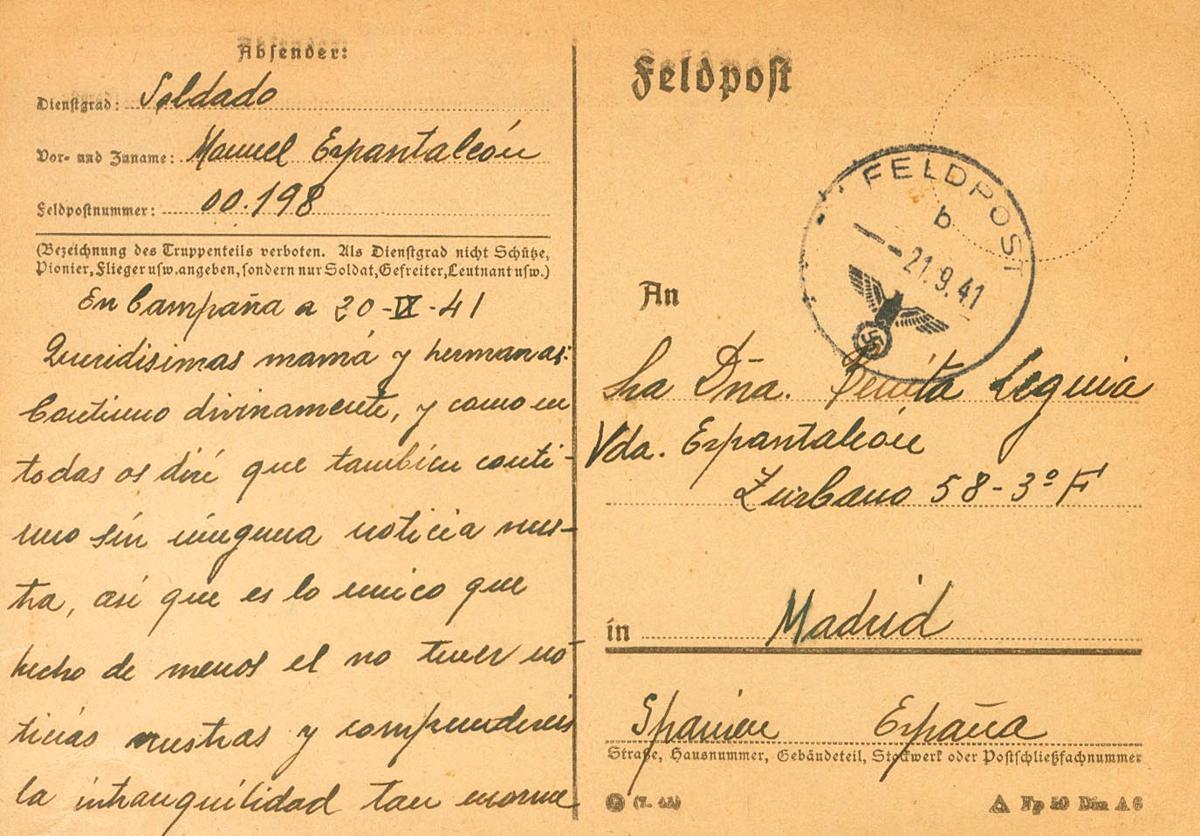 Absender:
Dienstgrad: Soldado
Vor- und Zuname: Manuel Espantaleón
Feldpostnummer: 00.198
(Bezeichnung des Truppenteils verboten. Als Dienstgrad nicht Schütze,
Pionier, Flieger usw. angeben, sondern nur Soldat, Gefreiter, Leutnant usw.)
En Campaña a 20-IX-41
Queridisimas mamá y hermanas:
Continuo divinamente, y como en
todas os diré que tambien conti-
nuo sin ninguna noticia vues-
tra, asi que es lo unico que
hecho de menos el no tener no
ticias vuestras y comprendereis
la intranquilidad tan enorme
Feldpost
FELDPOST
b
21.9.41
An
Sra Dña. Benita Leguia
Vda. Espantaleón
Zurbano 58-3º F
in Madrid
Spanien España
Straße, Hausnummer, Gebäudeteil, Stockwerk oder Postschließfachnummer
Din A 6